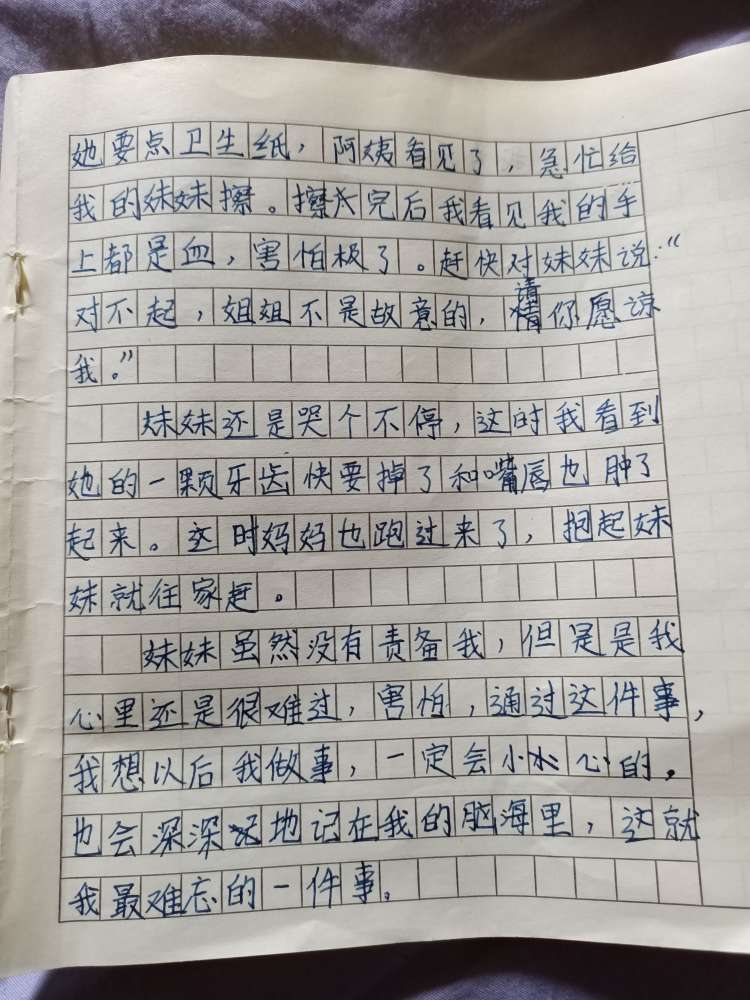 她要点卫生纸，阿姨看见了，急忙给
我的妹妹擦。擦完后我看见我的手
上都是血，害怕极了。赶快对妹妹说：“
对不起，姐姐不是故意的，请你愿谅
我。”
妹妹还是哭个不停，这时我看到
她的一颗牙齿快要掉了和嘴唇也肿了
起来。这时妈妈也跑过来了，抱起妹
妹就往家赶。
妹妹虽然没有责备我，但是是我
心里还是很难过，害怕，通过这件事，
我想以后我做事，一定会小心的，
也会深深地记在我的脑海里，这就
我最难忘的一件事。